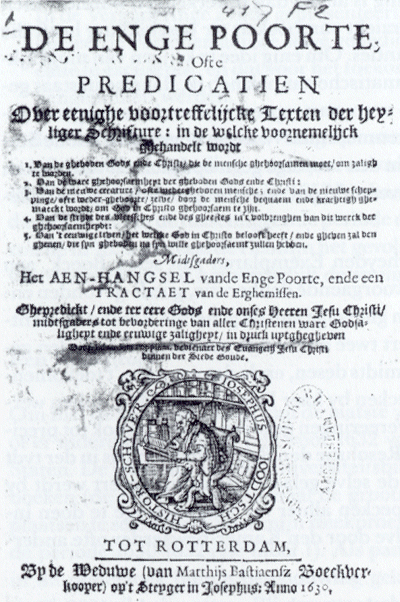 417 F2
DE ENGE POORTE,
Ofte
PREDICATIEN
Over eenighe voortreffelijcke Texten der hey-
liger Schrifture: in de welcke voornemelijck
Ghehandelt wordt
1. Van de gheboden Gods ende Christi, die de mensche ghehoorsamen moet, om zaligh
te worden.
2. Van de ware ghehoorsaemheyt der gheboden Gods ende Christi:
3. Van de nieuwe creature, ofte weder-gheboren mensche; ende van de nieuwe schep-
pinge, ofte weder-gheboorte, selve, door de mensche bequaem ende krachtigh ghe-
maeckt wordt, om God in Christo ghehoorsaem te zijn.
4. Van de strijdt des vleesches ende des gheestes in't volbrenghen van dit werck der
ghehoorsaemheydt:
5. Van 't eeuwige leven, het welcke God in Christo belooft heeft, ende gheven zal den
ghenen, die sijn gheboden na sijn wille ghehoorsaemt zullen hebben.
Midtsgaders,
Het AEN-HANGSEL vande Enge Poorte, ende een
TRACTAET van de Erghernissen.
Ghepredickt, ende ter eere Gods ende onses Heeren Jesu Christi,
midtsgaders tot bevorderinge van aller Christenen ware Godsa-
ligheyt ende eeuwige zaligheyt, in druck uytghegheven
dienaer des Evangelij Jesu Christi
binnen der Stede Goude.
IOSEPHUS IOOTSCHE HISTORI-SCHYVER
TOT ROTTERDAM,
By de Weduwe (van Matthijs Bastiaensz Boeckver-
kooper) op't Steyger in Josephus: Anno 1630,